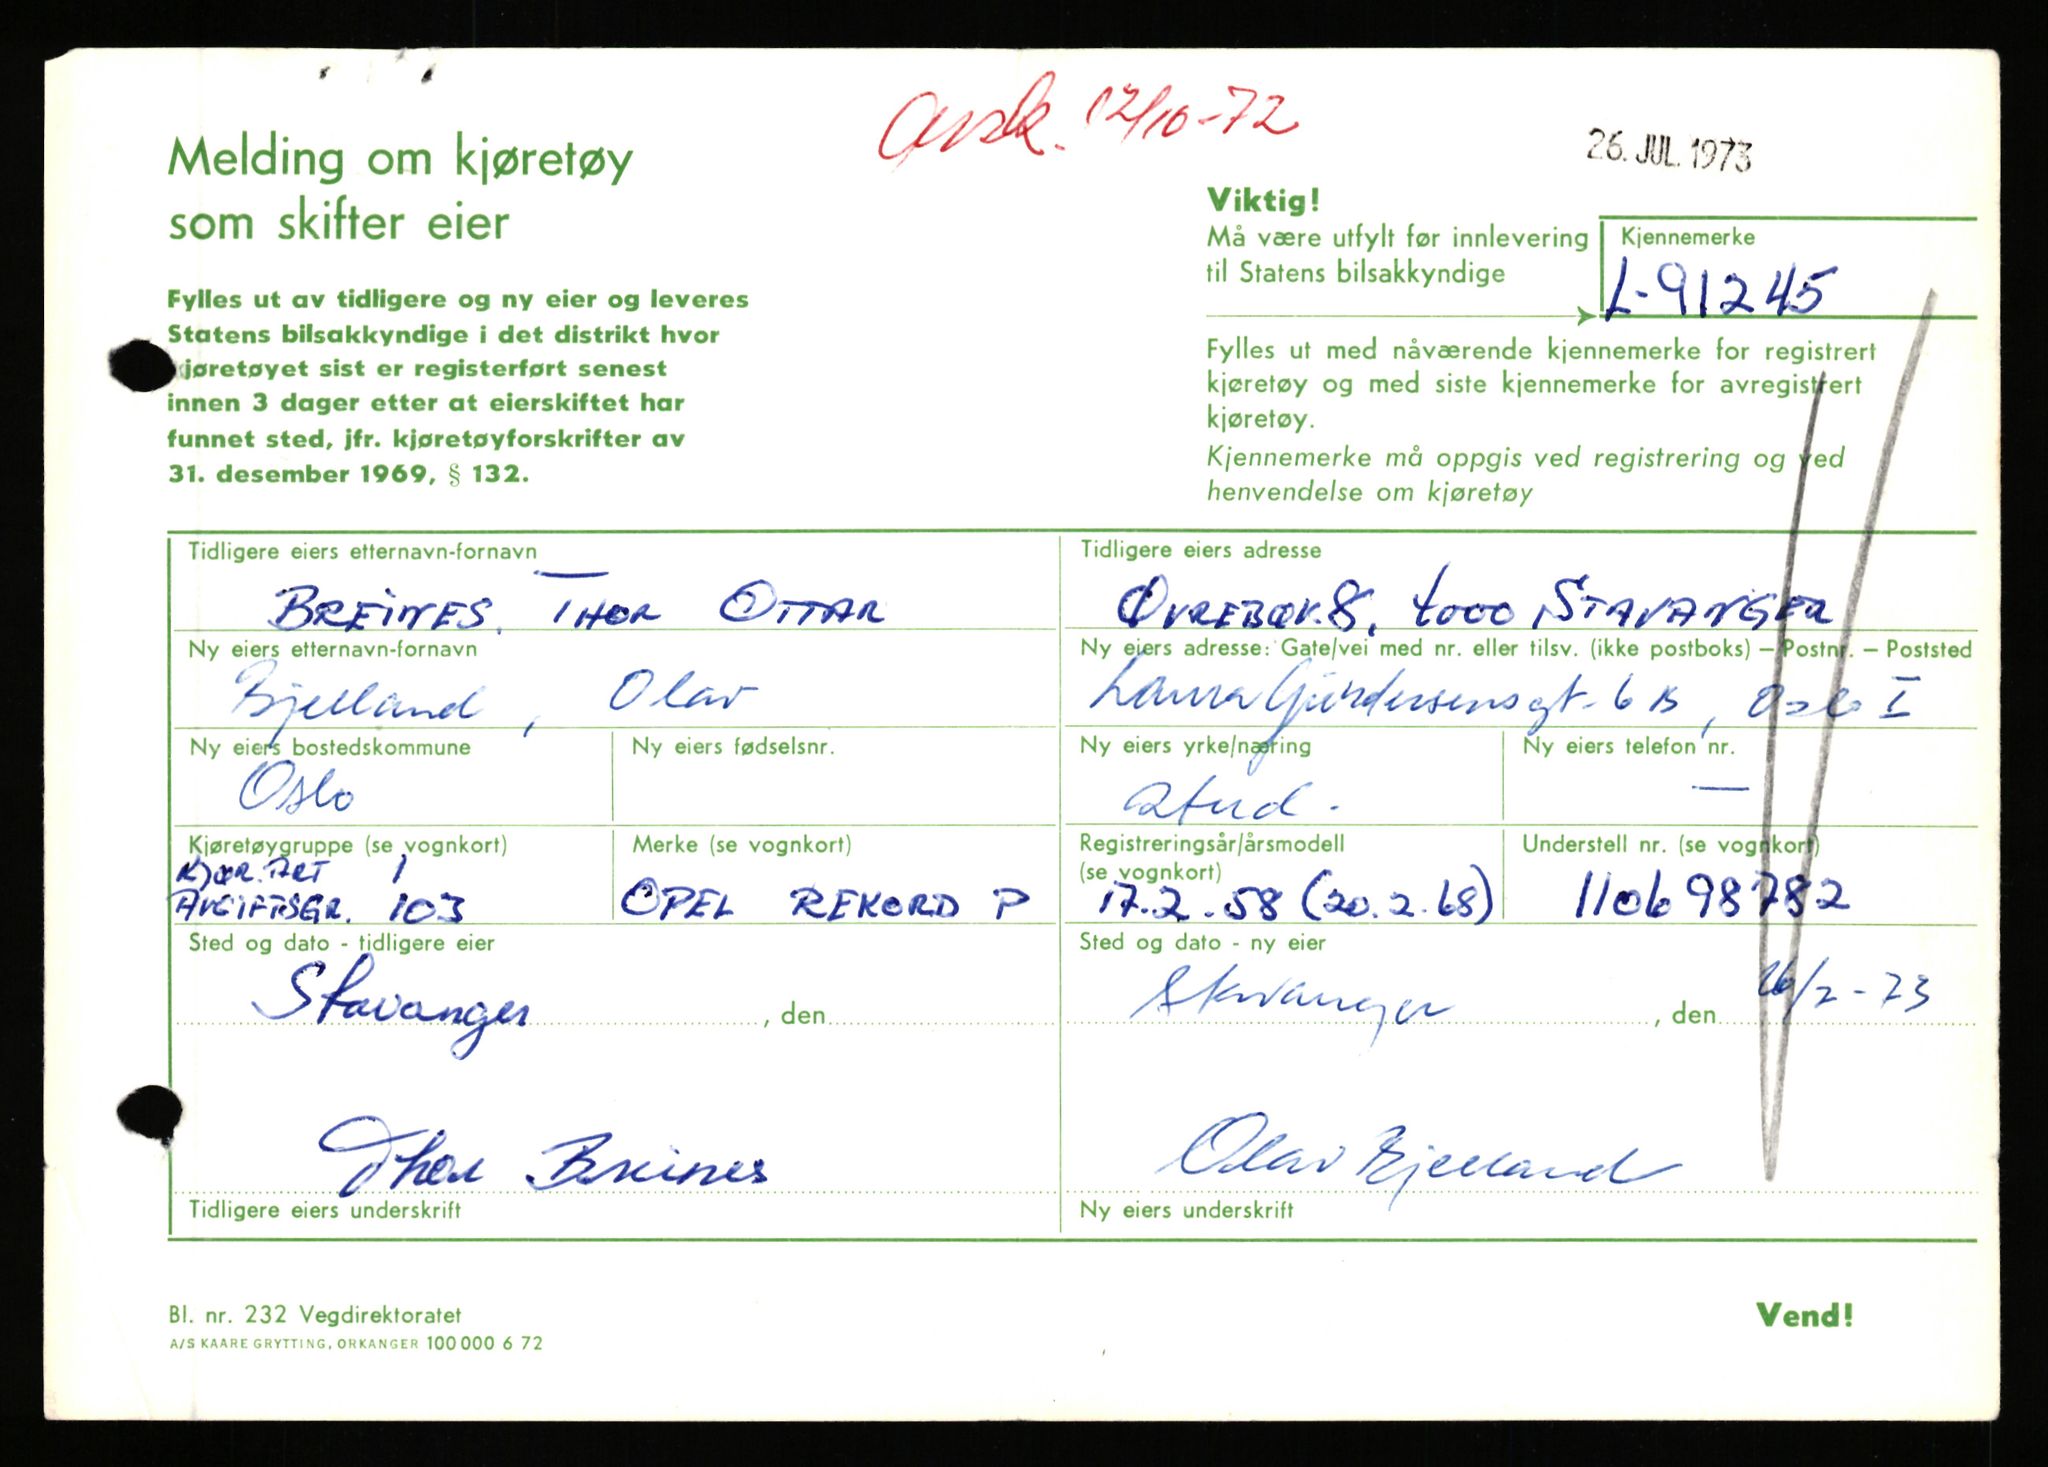 Avsk. 12/10-72
26. JUL. 1973
Melding om kjøretøy
som skifter eier
Viktig!
Må være utfylt før innlevering
til Statens bilsakkyndige
Kjennemerke
L-91245
Fylles ut av tidligere og ny eier og leveres
Statens bilsakkyndige i det distrikt hvor
kjøretøyet sist er registerført senest
innen 3 dager etter at eierskiftet har
funnet sted, jfr. kjøretøyforskrifter av
31. desember 1969, § 132.
Fylles ut med nåværende kjennemerke for registrert
kjøretøy og med siste kjennemerke for avregistrert
kjøretøy.
Kjennemerke må oppgis ved registrering og ved
henvendelse om kjøretøy
Tidligere eiers etternavn-fornavn
BREINES, THOR OTTAR
Tidligere eiers adresse
ØVREBØK. 8, 4000 STAVANGER
Ny eiers etternavn-fornavn
Bjelland, Olav
Ny eiers adresse: Gate/vei med nr. eller tilsv. (ikke postboks) – Postnr. – Poststed
Laura Gundersensgt. 6 B, Oslo I
Ny eiers bostedskommune
Oslo
Ny eiers fødselsnr.
Ny eiers yrke/næring
Stud.
Ny eiers telefon nr.
—
Kjøretøygruppe (se vognkort)
KJØR. ART 1
AVGIFTSGR. 103
Merke (se vognkort)
OPEL REKORD P
Registreringsår/årsmodell
(se vognkort)
17.2.58 (20.2.68)
Understell nr. (se vognkort)
110698782
Sted og dato - tidligere eier
Stavanger, den
Sted og dato - ny eier
Stavanger, den 26/2-73
Thor Breines
Tidligere eiers underskrift
Olav Bjelland
Ny eiers underskrift
Bl. nr. 232 Vegdirektoratet
A/S KAARE GRYTTING, ORKANGER 100 000 6 72
Vend!